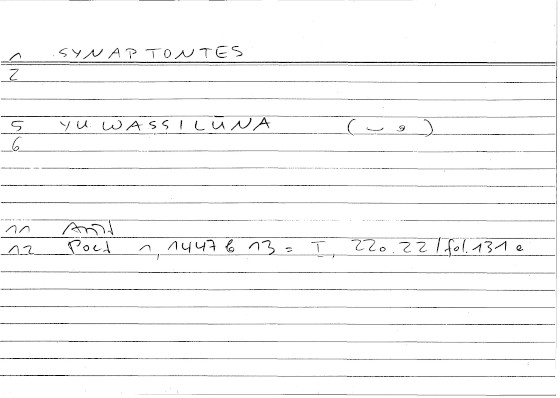 1 SYNAPTONTES
2
5 YUWASSILŪNA ( و )
6
11 Arist
12 Poet 1, 1447 b 13 = I, 220.22 / fol. 131 a